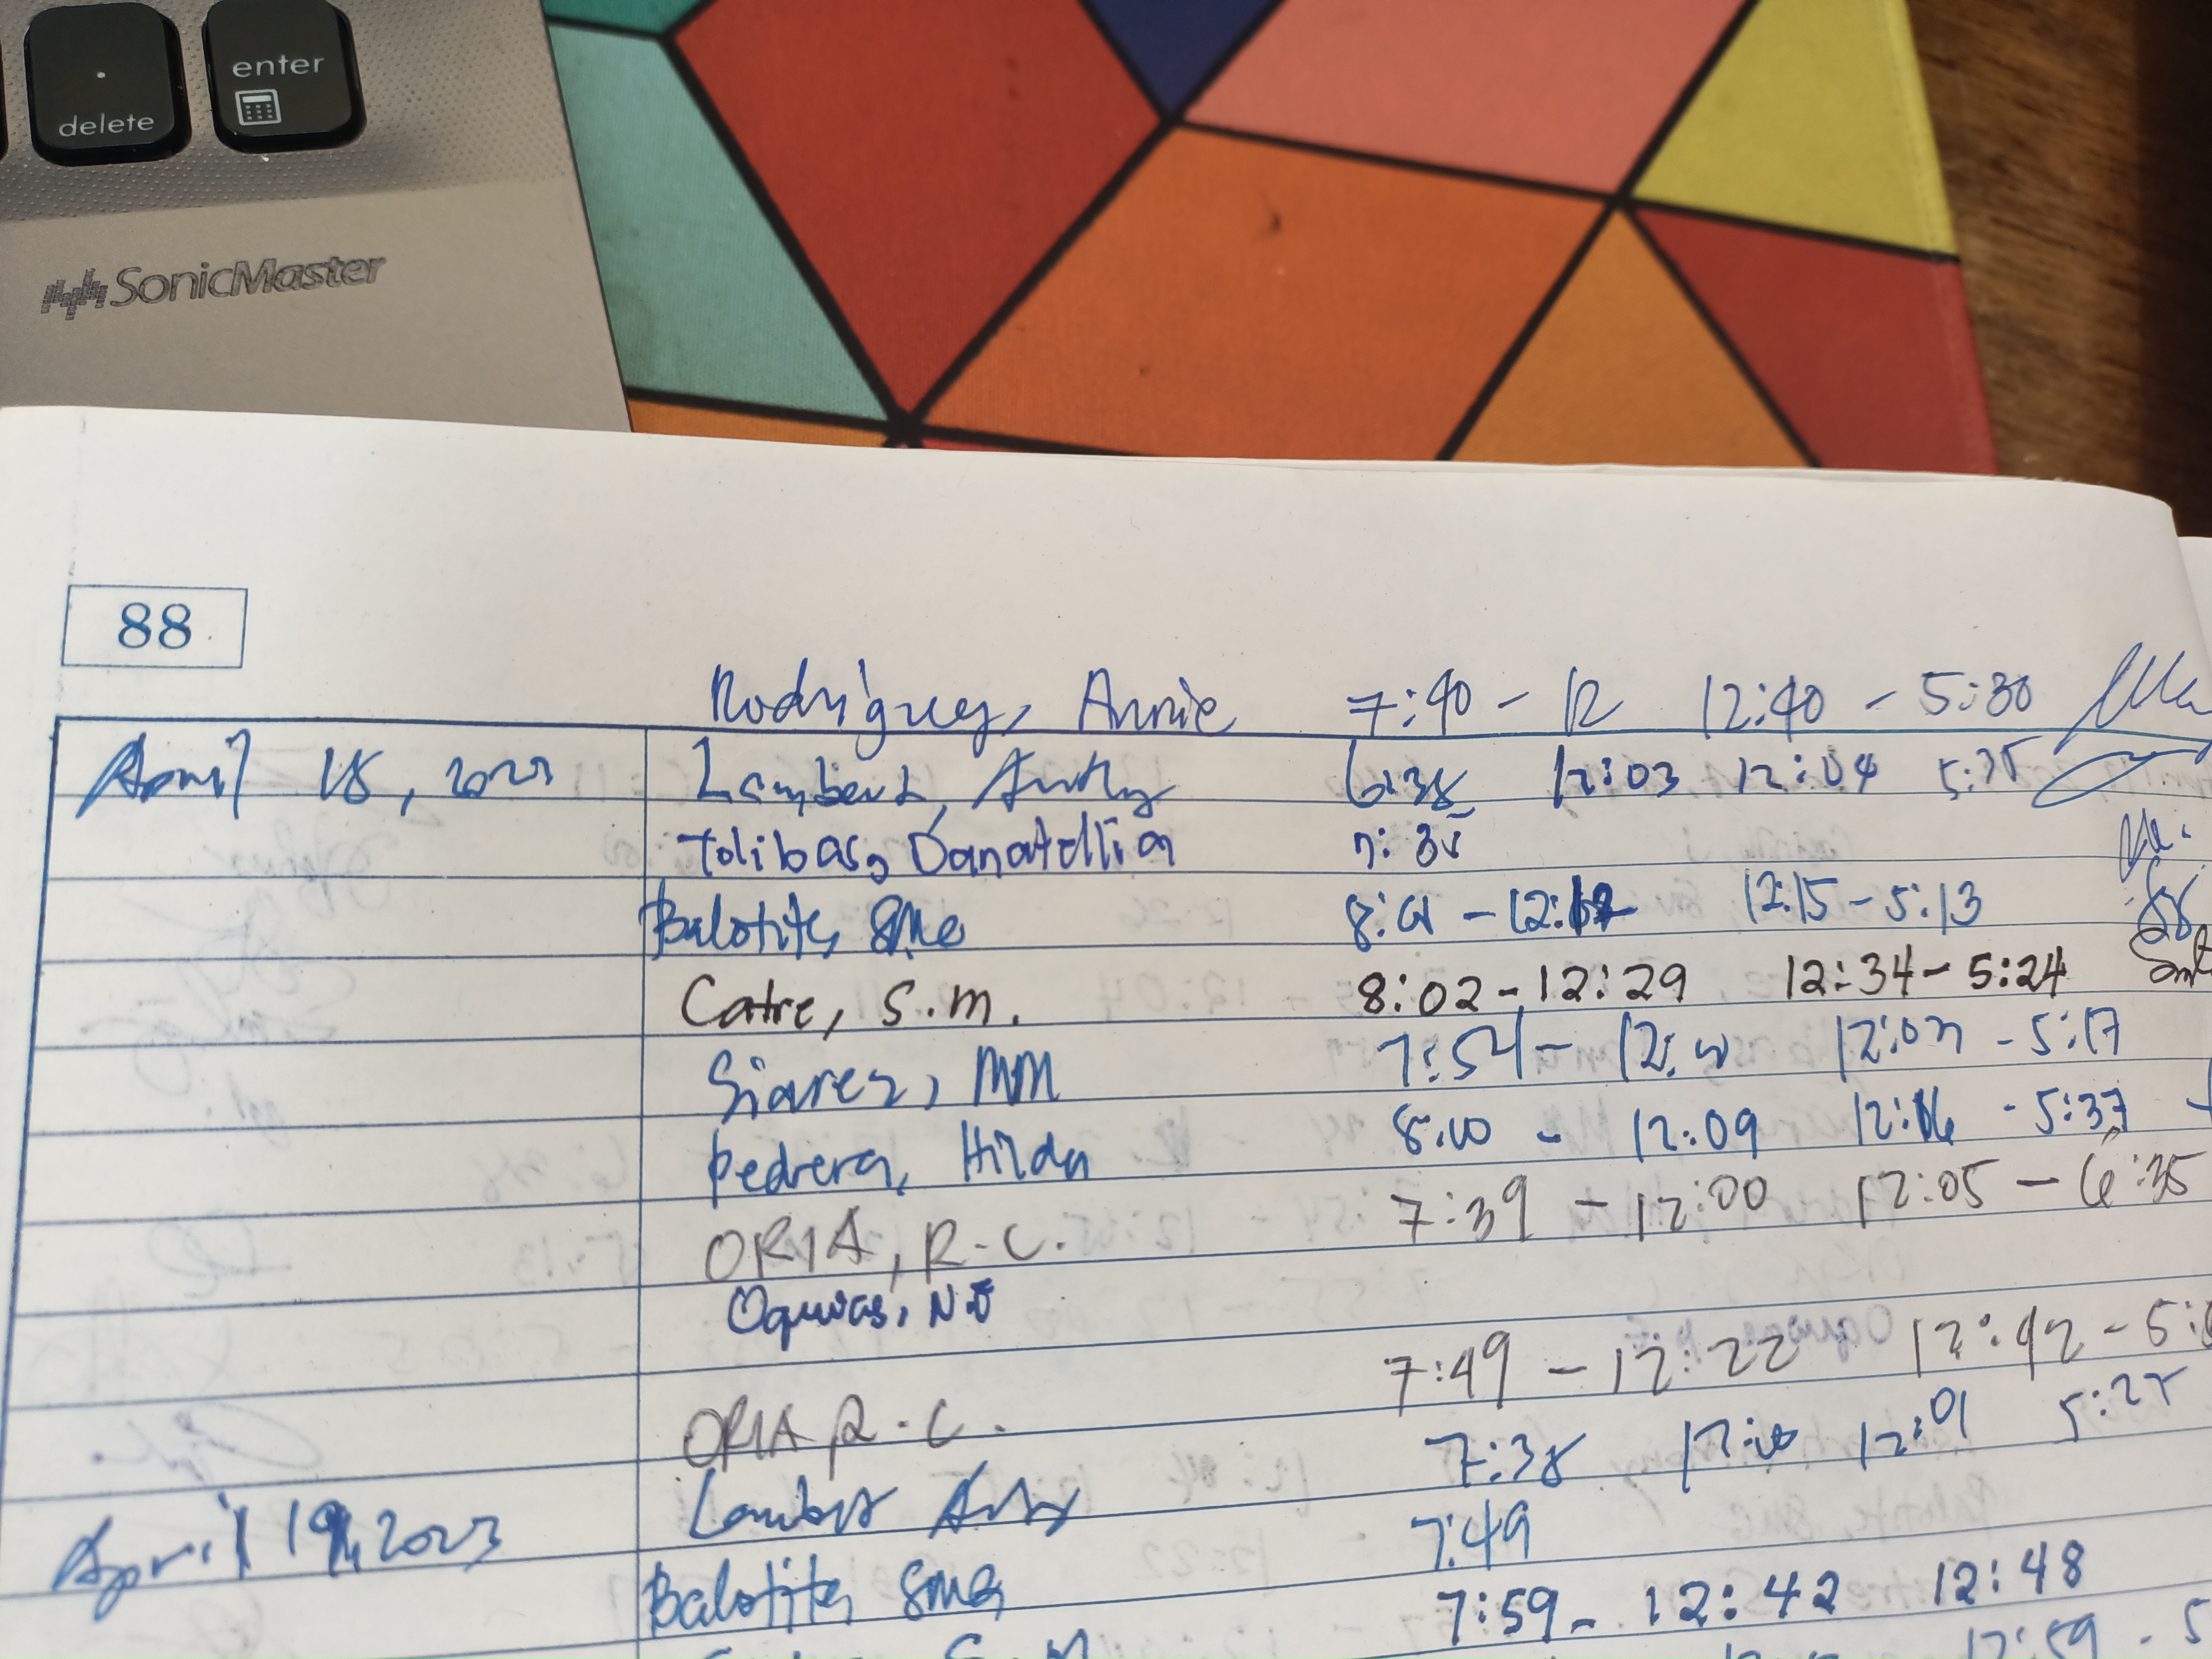 delete
enter
SonicMaster
88
Rodriguez, Annie 7:40 - 12 12:40 - 5:30
April 18, 2023 Lambert, 6:38 12:03 12:04 5:35
Tolibas, Danatellia 7:35
Balotite, SMe 8:01 - 12:12 12:15 - 5:13
Catre, S.M. 8:02 - 12:29 12:34 - 5:24
Siarez, MM 7:54 - 12:10 12:07 - 5:17
Pedrera, Hilda 8:00 - 12:09 12:16 - 5:37
ORIA, R.C. 7:39 - 12:00 12:05 - 6:35
Oquias, N.E
ORIA R.C. 7:49 - 12:22 12:42 - 5:
April 19, 2023 Lambert 7:38 12:00 12:01 5:25
Balotite, SMe 7:49
7:59 - 12:42 12:48
12:59 - 5